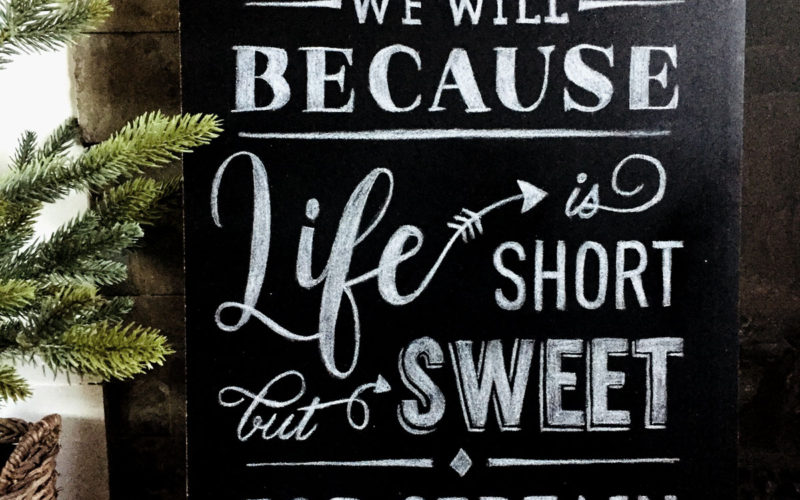 WE WILL
BECAUSE
Life is
SHORT
but SWEET